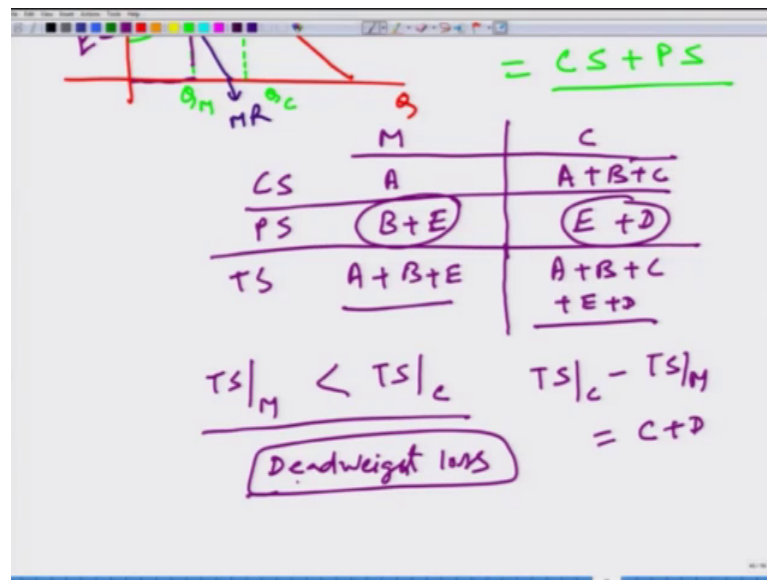 E
= CS + PS
Q_M Q_C Q
MR
M C
CS A A+B+C
PS B+E E+D
TS A+B+E A+B+C
+E+D
TS|_M < TS|_C TS|_C - TS|_M
= C+D
Deadweight loss